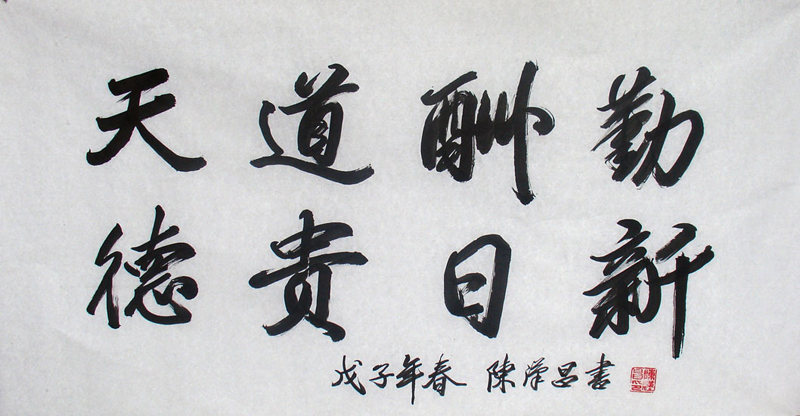 天道酬勤
德贵日新
戊子年春 陳学昌書